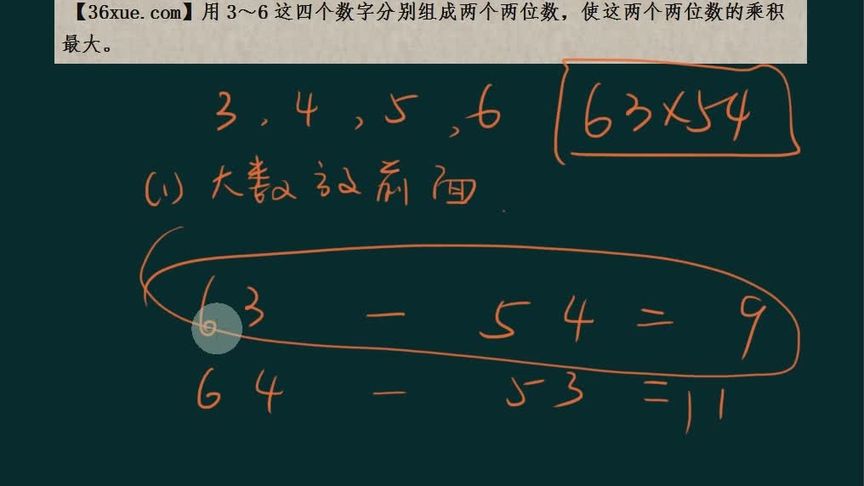 【36xue.com】用3～6这四个数字分别组成两个两位数，使这两个两位数的乘积
最大。
3，4，5，6 63×54
(1) 大数放前面
63 － 54 ＝ 9
64 － 53 ＝ 11